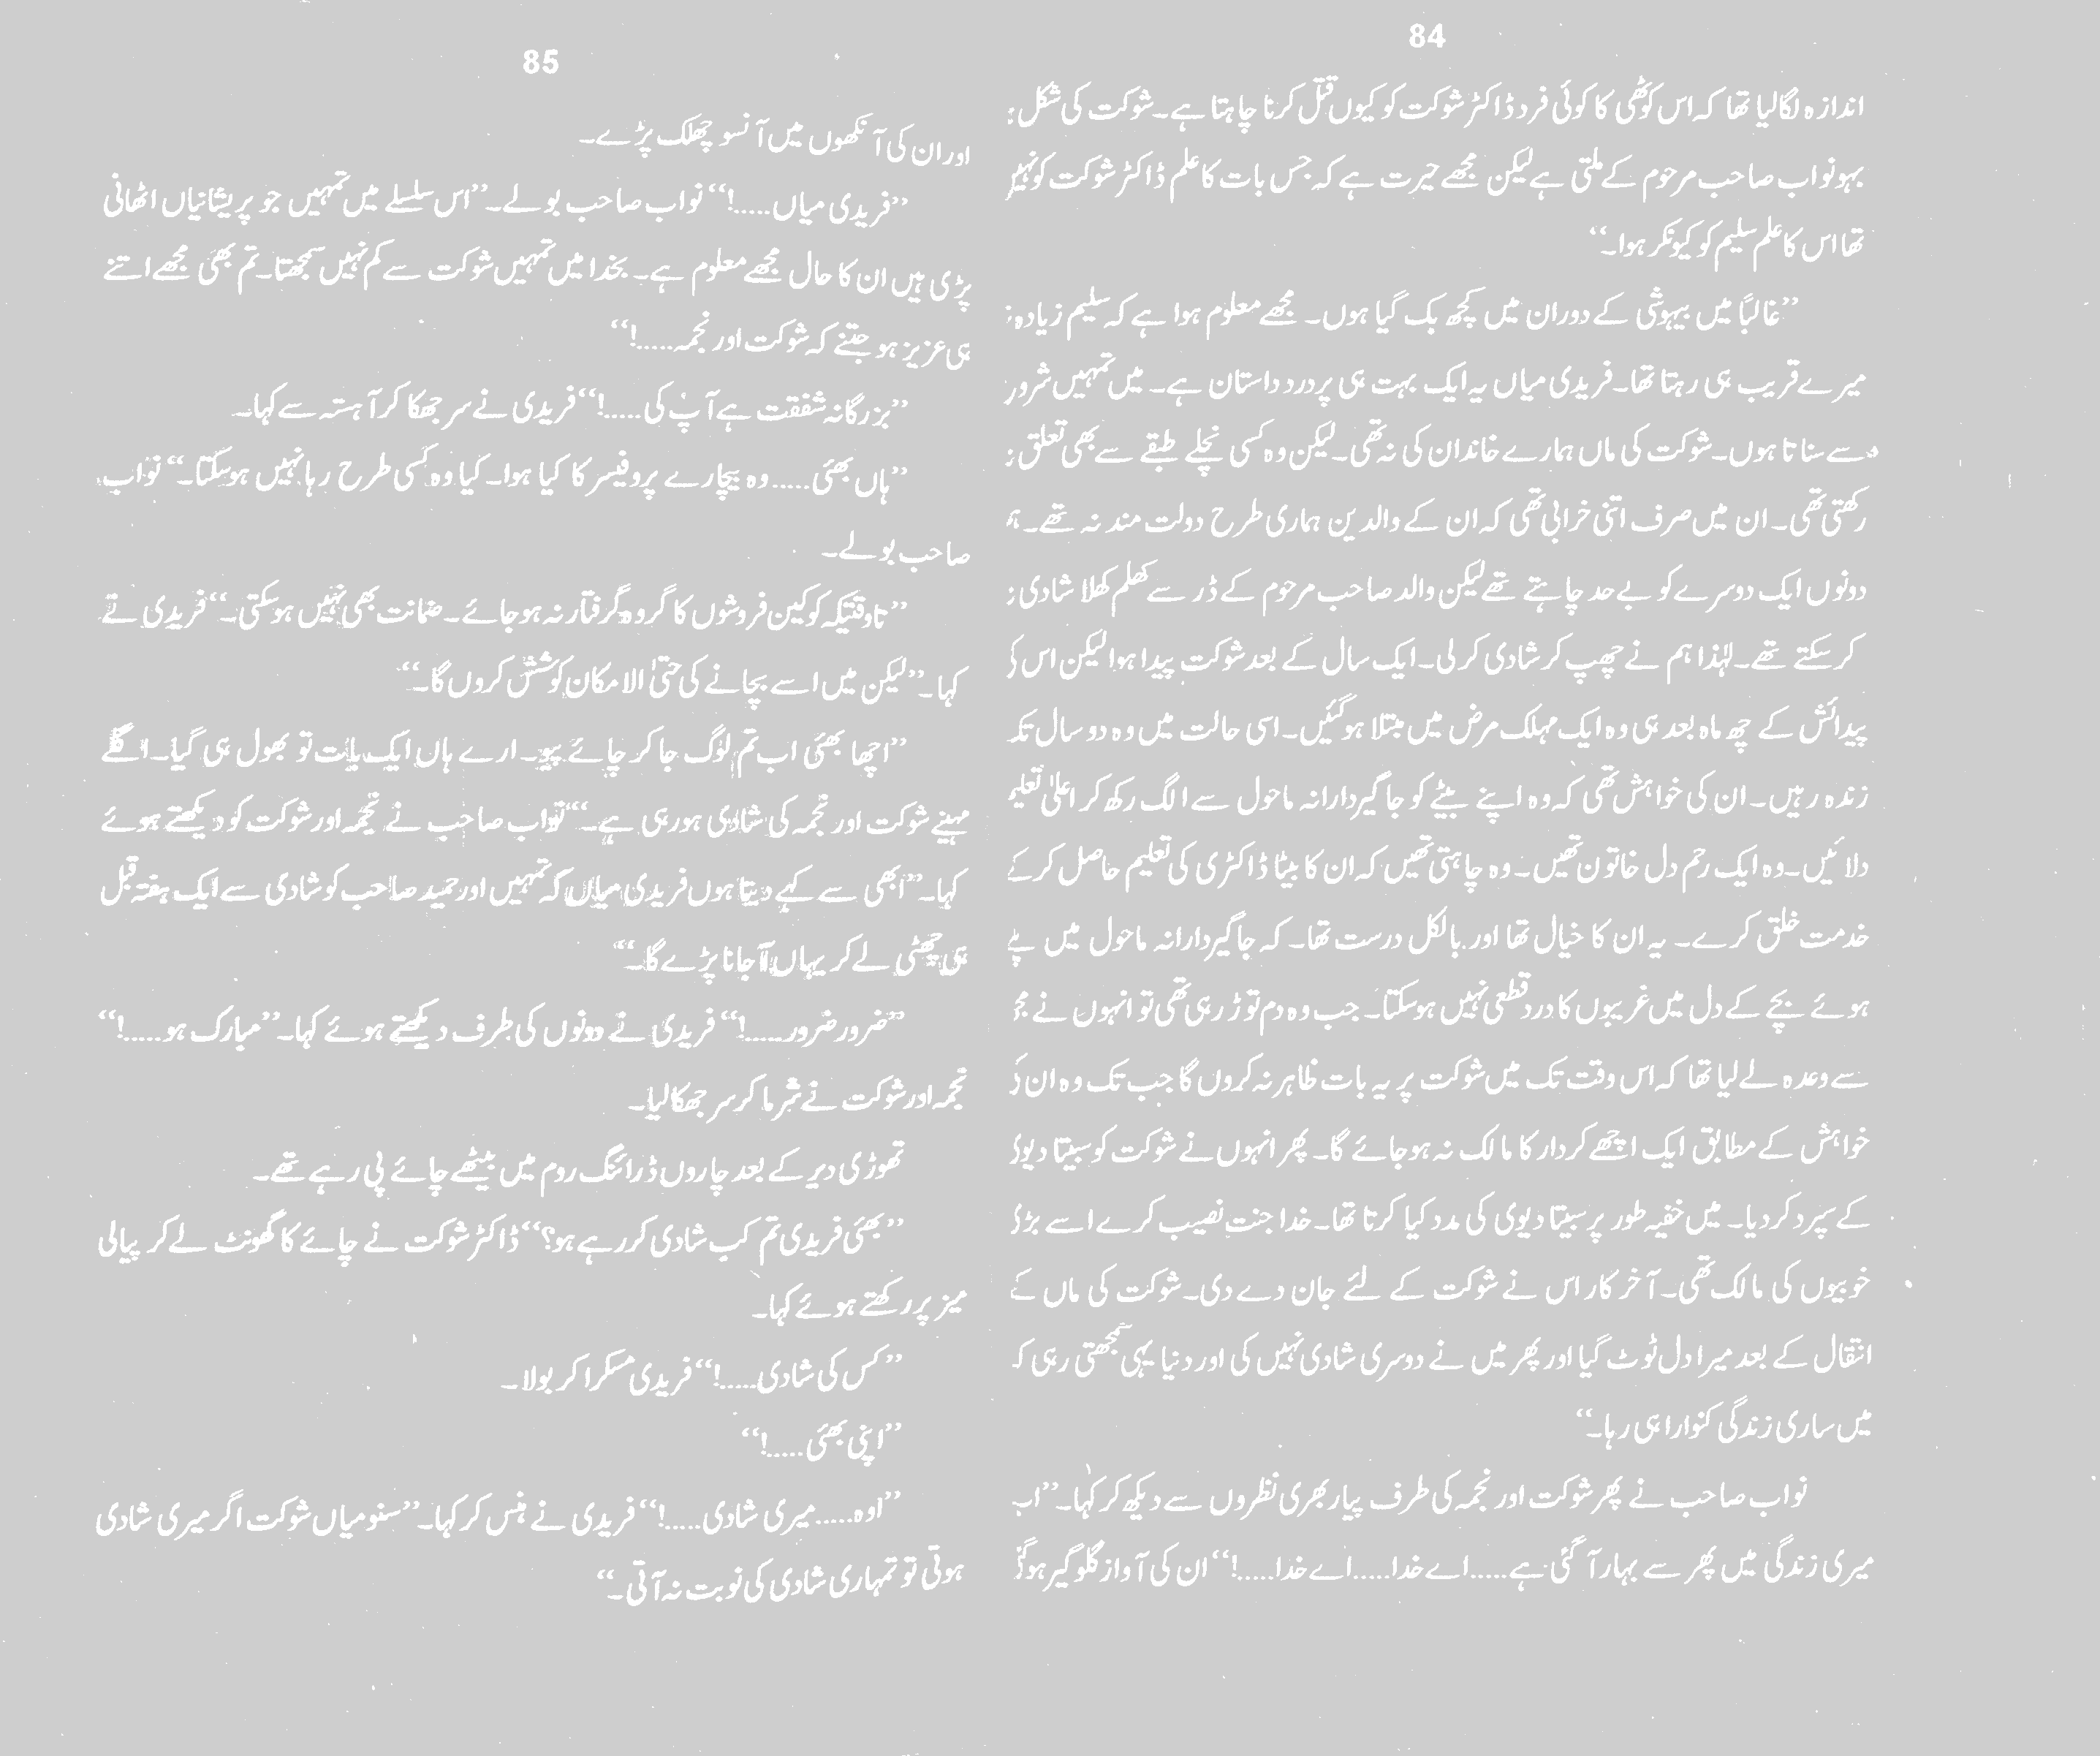 84
اندازہ لگا لیا تھا کہ اس کوٹھی کا کوئی فرد ڈاکٹر شوکت کو کیوں قتل کرنا چاہتا ہے۔ شوکت کی شکل
بہو نواب صاحب مرحوم سے ملتی ہے لیکن مجھے حیرت ہے کہ جس بات کا علم ڈاکٹر شوکت کو نہیں
تھا اس کا علم سلیم کو کیونکر ہوا۔“
”غالباً میں بیہوشی کے دوران میں کچھ بک گیا ہوں۔ مجھے معلوم ہوا ہے کہ سلیم زیادہ
میرے قریب ہی رہتا تھا۔ فریدی میاں یہ ایک بہت ہی پردرد داستان ہے۔ میں تمہیں شرور
سے سناتا ہوں۔ شوکت کی ماں ہمارے خاندان کی نہ تھی۔ لیکن وہ کسی نچلے طبقے سے بھی تعلق
رکھتی تھی۔ ان میں صرف اتنی خرابی تھی کہ ان کے والدین ہماری طرح دولت مند نہ تھے۔
دونوں ایک دوسرے کو بے حد چاہتے تھے لیکن والد صاحب مرحوم کے ڈر سے کھلم کھلا شادی
کر سکتے تھے۔ لہٰذا ہم نے چھپ کر شادی کر لی۔ ایک سال کے بعد شوکت پیدا ہوا لیکن اس
پیدائش کے چھ ماہ بعد ہی وہ ایک مہلک مرض میں مبتلا ہوگئیں۔ اسی حالت میں وہ دو سال تک
زندہ رہیں۔ ان کی خواہش تھی کہ وہ اپنے بیٹے کو جاگیردارانہ ماحول سے الگ رکھ کر اعلیٰ تعلیم
دلائیں۔ وہ ایک رحم دل خاتون تھیں۔ وہ چاہتی تھیں کہ ان کا بیٹا ڈاکٹری کی تعلیم حاصل کرکے
خدمت خلق کرے۔ یہ ان کا خیال تھا اور بالکل درست تھا۔ کہ جاگیردارانہ ماحول میں پلے
ہوئے بچے کے دل میں غریبوں کا درد قطعی نہیں ہوسکتا۔ جب وہ دم توڑ رہی تھی تو انہوں نے مجھ
سے وعدہ لے لیا تھا کہ اس وقت تک میں شوکت پر یہ بات ظاہر نہ کروں گا جب تک وہ ان
خواہش کے مطابق ایک اچھے کردار کا مالک نہ ہوجائے گا۔ پھر انہوں نے شوکت کو سیتا دیوی
کے سپرد کردیا۔ میں خفیہ طور پر سیتا دیوی کی مدد کیا کرتا تھا۔ خدا جنت نصیب کرے اسے بڑی
خوبیوں کی مالک تھی۔ آخر کار اس نے شوکت کے لئے جان دے دی۔ شوکت کی ماں کے
انتقال کے بعد میرا دل ٹوٹ گیا اور پھر میں نے دوسری شادی نہیں کی اور دنیا یہی سمجھتی رہی کہ
میں ساری زندگی کنوارا ہی رہا۔“
نواب صاحب نے پھر شوکت اور نجمہ کی طرف پیار بھری نظروں سے دیکھ کر کہا۔ ”اب
میری زندگی میں پھر سے بہار آ گئی ہے......اے خدا......اے خدا......!“ ان کی آواز گلوگیر ہوگئی
85
اور ان کی آنکھوں میں آنسو چھلک پڑے۔
”فریدی میاں......!“ نواب صاحب بولے۔ ”اس سلسلے میں تمہیں جو پریشانیاں اٹھانی
پڑی ہیں ان کا حال مجھے معلوم ہے۔ بخدا میں تمہیں شوکت سے کم نہیں سمجھتا۔ تم بھی مجھے اتنے
ہی عزیز ہو جتنے کہ شوکت اور نجمہ......!“
”بزرگانہ شفقت ہے آپ کی......!“ فریدی نے سر جھکا کر آہستہ سے کہا۔
”ہاں بھئی......وہ بیچارے پروفیسر کا کیا ہوا۔ کیا وہ کسی طرح رہا نہیں ہوسکتا۔“ نواب
صاحب بولے۔
”تاوقتیکہ کوکین فروشوں کا گروہ گرفتار نہ ہوجائے۔ ضمانت بھی نہیں ہوسکتی۔“ فریدی نے
کہا۔ ”لیکن میں اسے بچانے کی حتیٰ الامکان کوشش کروں گا۔“
”اچھا بھئی اب تم لوگ جا کر چائے پیو۔ ارے ہاں ایک بات تو بھول ہی گیا۔ اگلے
مہینے شوکت اور نجمہ کی شادی ہورہی ہے۔“ نواب صاحب نے نجمہ اور شوکت کو دیکھتے ہوئے
کہا۔ ”ابھی سے کہے دیتا ہوں فریدی میاں کہ تمہیں اور حمید صاحب کو شادی سے ایک ہفتہ قبل
ہی چھٹی لے کر یہاں آ جانا پڑے گا۔“
”ضرور ضرور......!“ فریدی نے دونوں کی طرف دیکھتے ہوئے کہا۔ ”مبارک ہو......!“
نجمہ اور شوکت نے شرما کر سر جھکا لیا۔
تھوڑی دیر کے بعد چاروں ڈرائنگ روم میں بیٹھے چائے پی رہے تھے۔
”بھئی فریدی تم کب شادی کررہے ہو؟“ ڈاکٹر شوکت نے چائے کا گھونٹ لے کر پیالی
میز پر رکھتے ہوئے کہا۔
”کس کی شادی......!“ فریدی مسکرا کر بولا۔
”اپنی بھئی......!“
”اوہ......میری شادی......!“ فریدی نے ہنس کر کہا۔ ”سنو میاں شوکت اگر میری شادی
ہوتی تو تمہاری شادی کی نوبت نہ آتی۔“